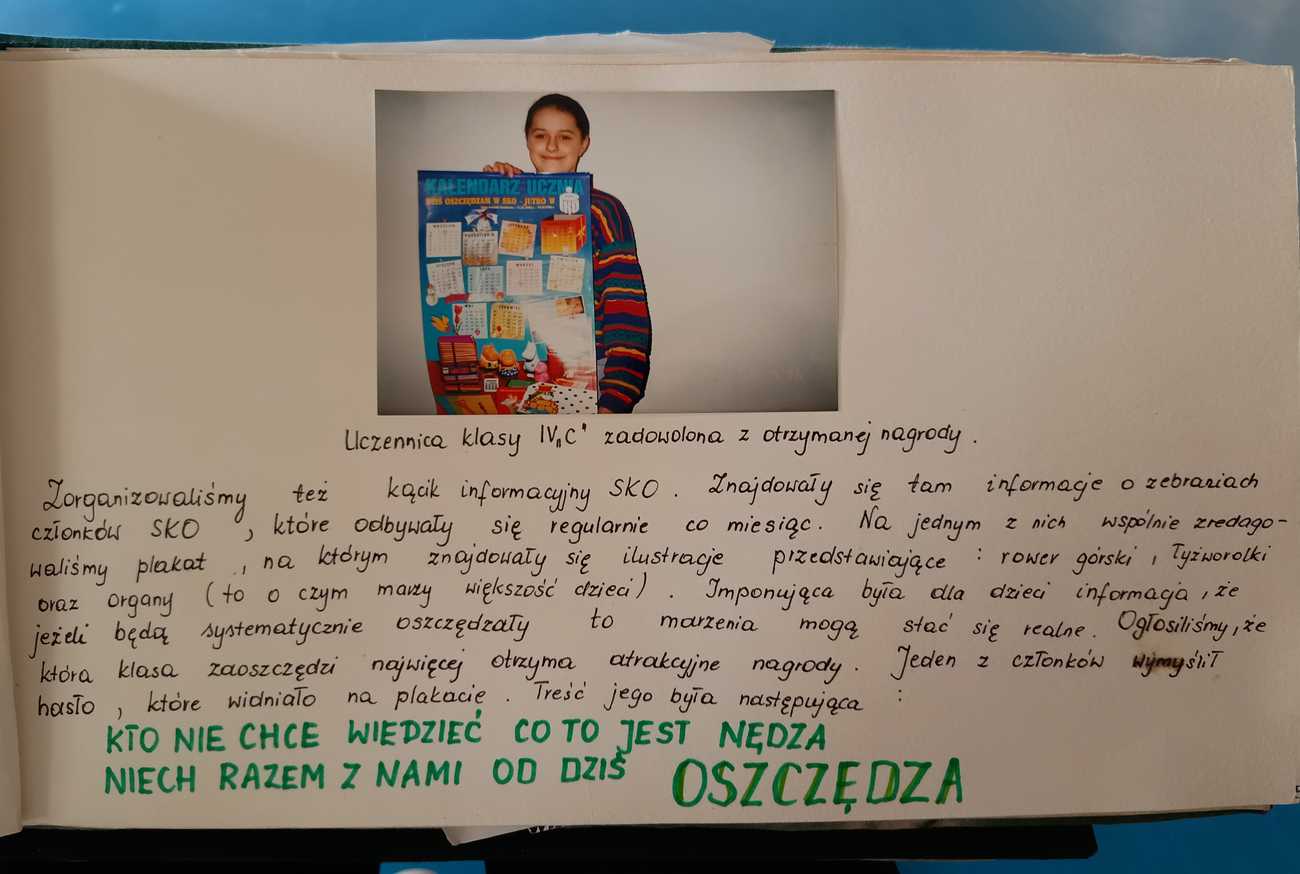 KALENDARZ UCZNIA
DZIŚ OSZCZĘDZAM W SKO - JUTRO W
Uczennica klasy IV „C" zadowolona z otrzymanej nagrody .
Zorganizowaliśmy też kącik informacyjny SKO . Znajdowały się tam informacje o zebraniach
członków SKO , które odbywały się regularnie co miesiąc . Na jednym z nich wspólnie zredago-
waliśmy plakat , na którym znajdowały się ilustracje przedstawiające : rower górski , łyżworolki
oraz organy ( to o czym marzy większość dzieci ) . Imponująca była dla dzieci informacja , że
jeżeli będą systematycznie oszczędzały to marzenia mogą stać się realne . Ogłosiliśmy , że
która klasa zaoszczędzi najwięcej otrzyma atrakcyjne nagrody . Jeden z członków wymyślił
hasło , które widniało na plakacie . Treść jego była następująca :
KTO NIE CHCE WIEDZIEĆ CO TO JEST NĘDZA
NIECH RAZEM Z NAMI OD DZIŚ OSZCZĘDZA